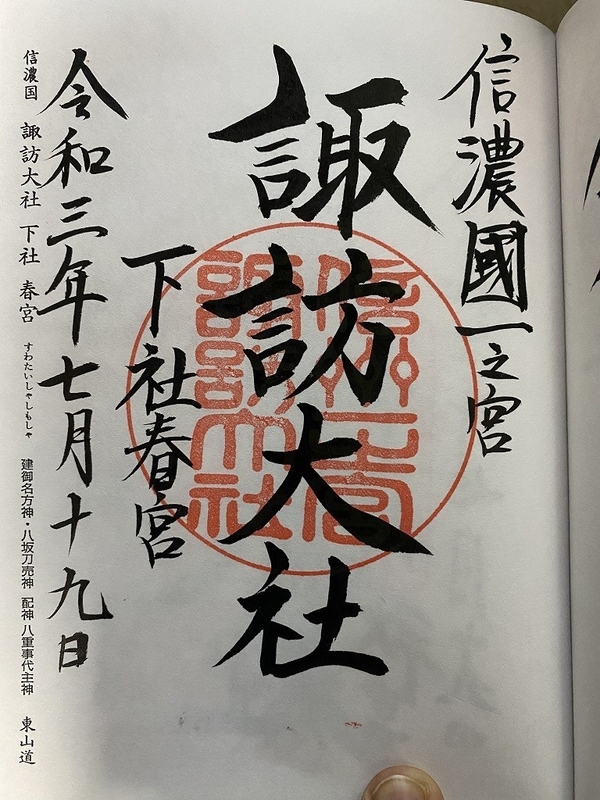 信濃國一之宮
諏訪大社
下社春宮
令和三年七月十九日
信濃国 諏訪大社 下社 春宮 すわたいしゃしもしゃ 建御名方神・八坂刀売神 配神 八重事代主神 東山道